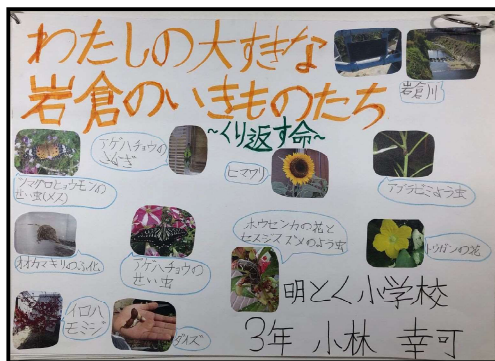 わたしの大すきな
岩倉のいきものたち
~くり返す命~
岩倉川
アゲハチョウの
さなぎ
ヒマワリ
ツマグロヒョウモンの
せい虫(メス)
オオカマキリのふ化
アゲハチョウの
せい虫
ホウセンカの花と
セスジスズメのよう虫
トウガンの花
イロハ
モミジ
ダイズ
明とく小学校
3年 小林 幸可